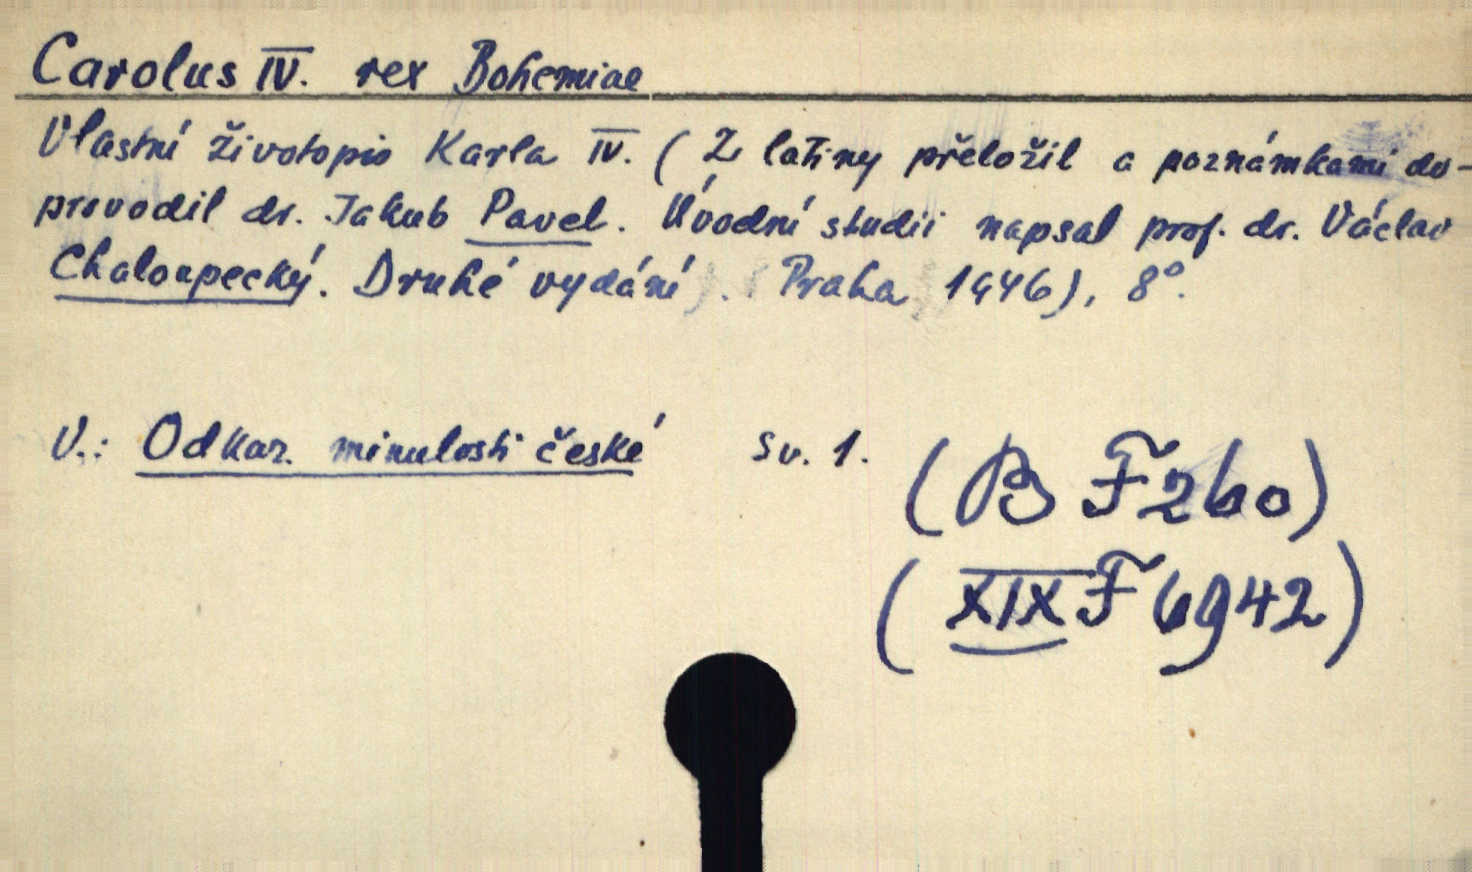 Carolus IV. rex Bohemiae
Vlastní životopis Karla IV. (Z latiny přeložil a poznámkami do-
provodil dr. Jakub Pavel. Úvodní studii napsal prof. dr. Václav
Chaloupecký. Druhé vydání. Praha 1946), 8°.
V.: Odkaz minulosti české Sv. 1.
(B F 260)
(XIX F 6942)